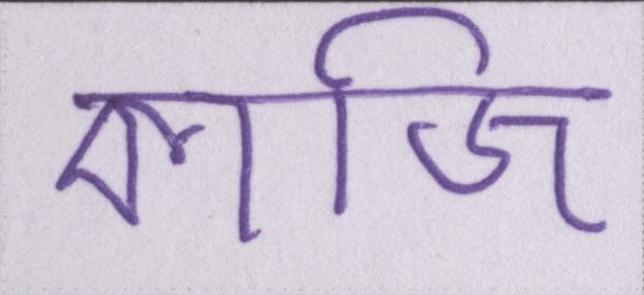 কাজি